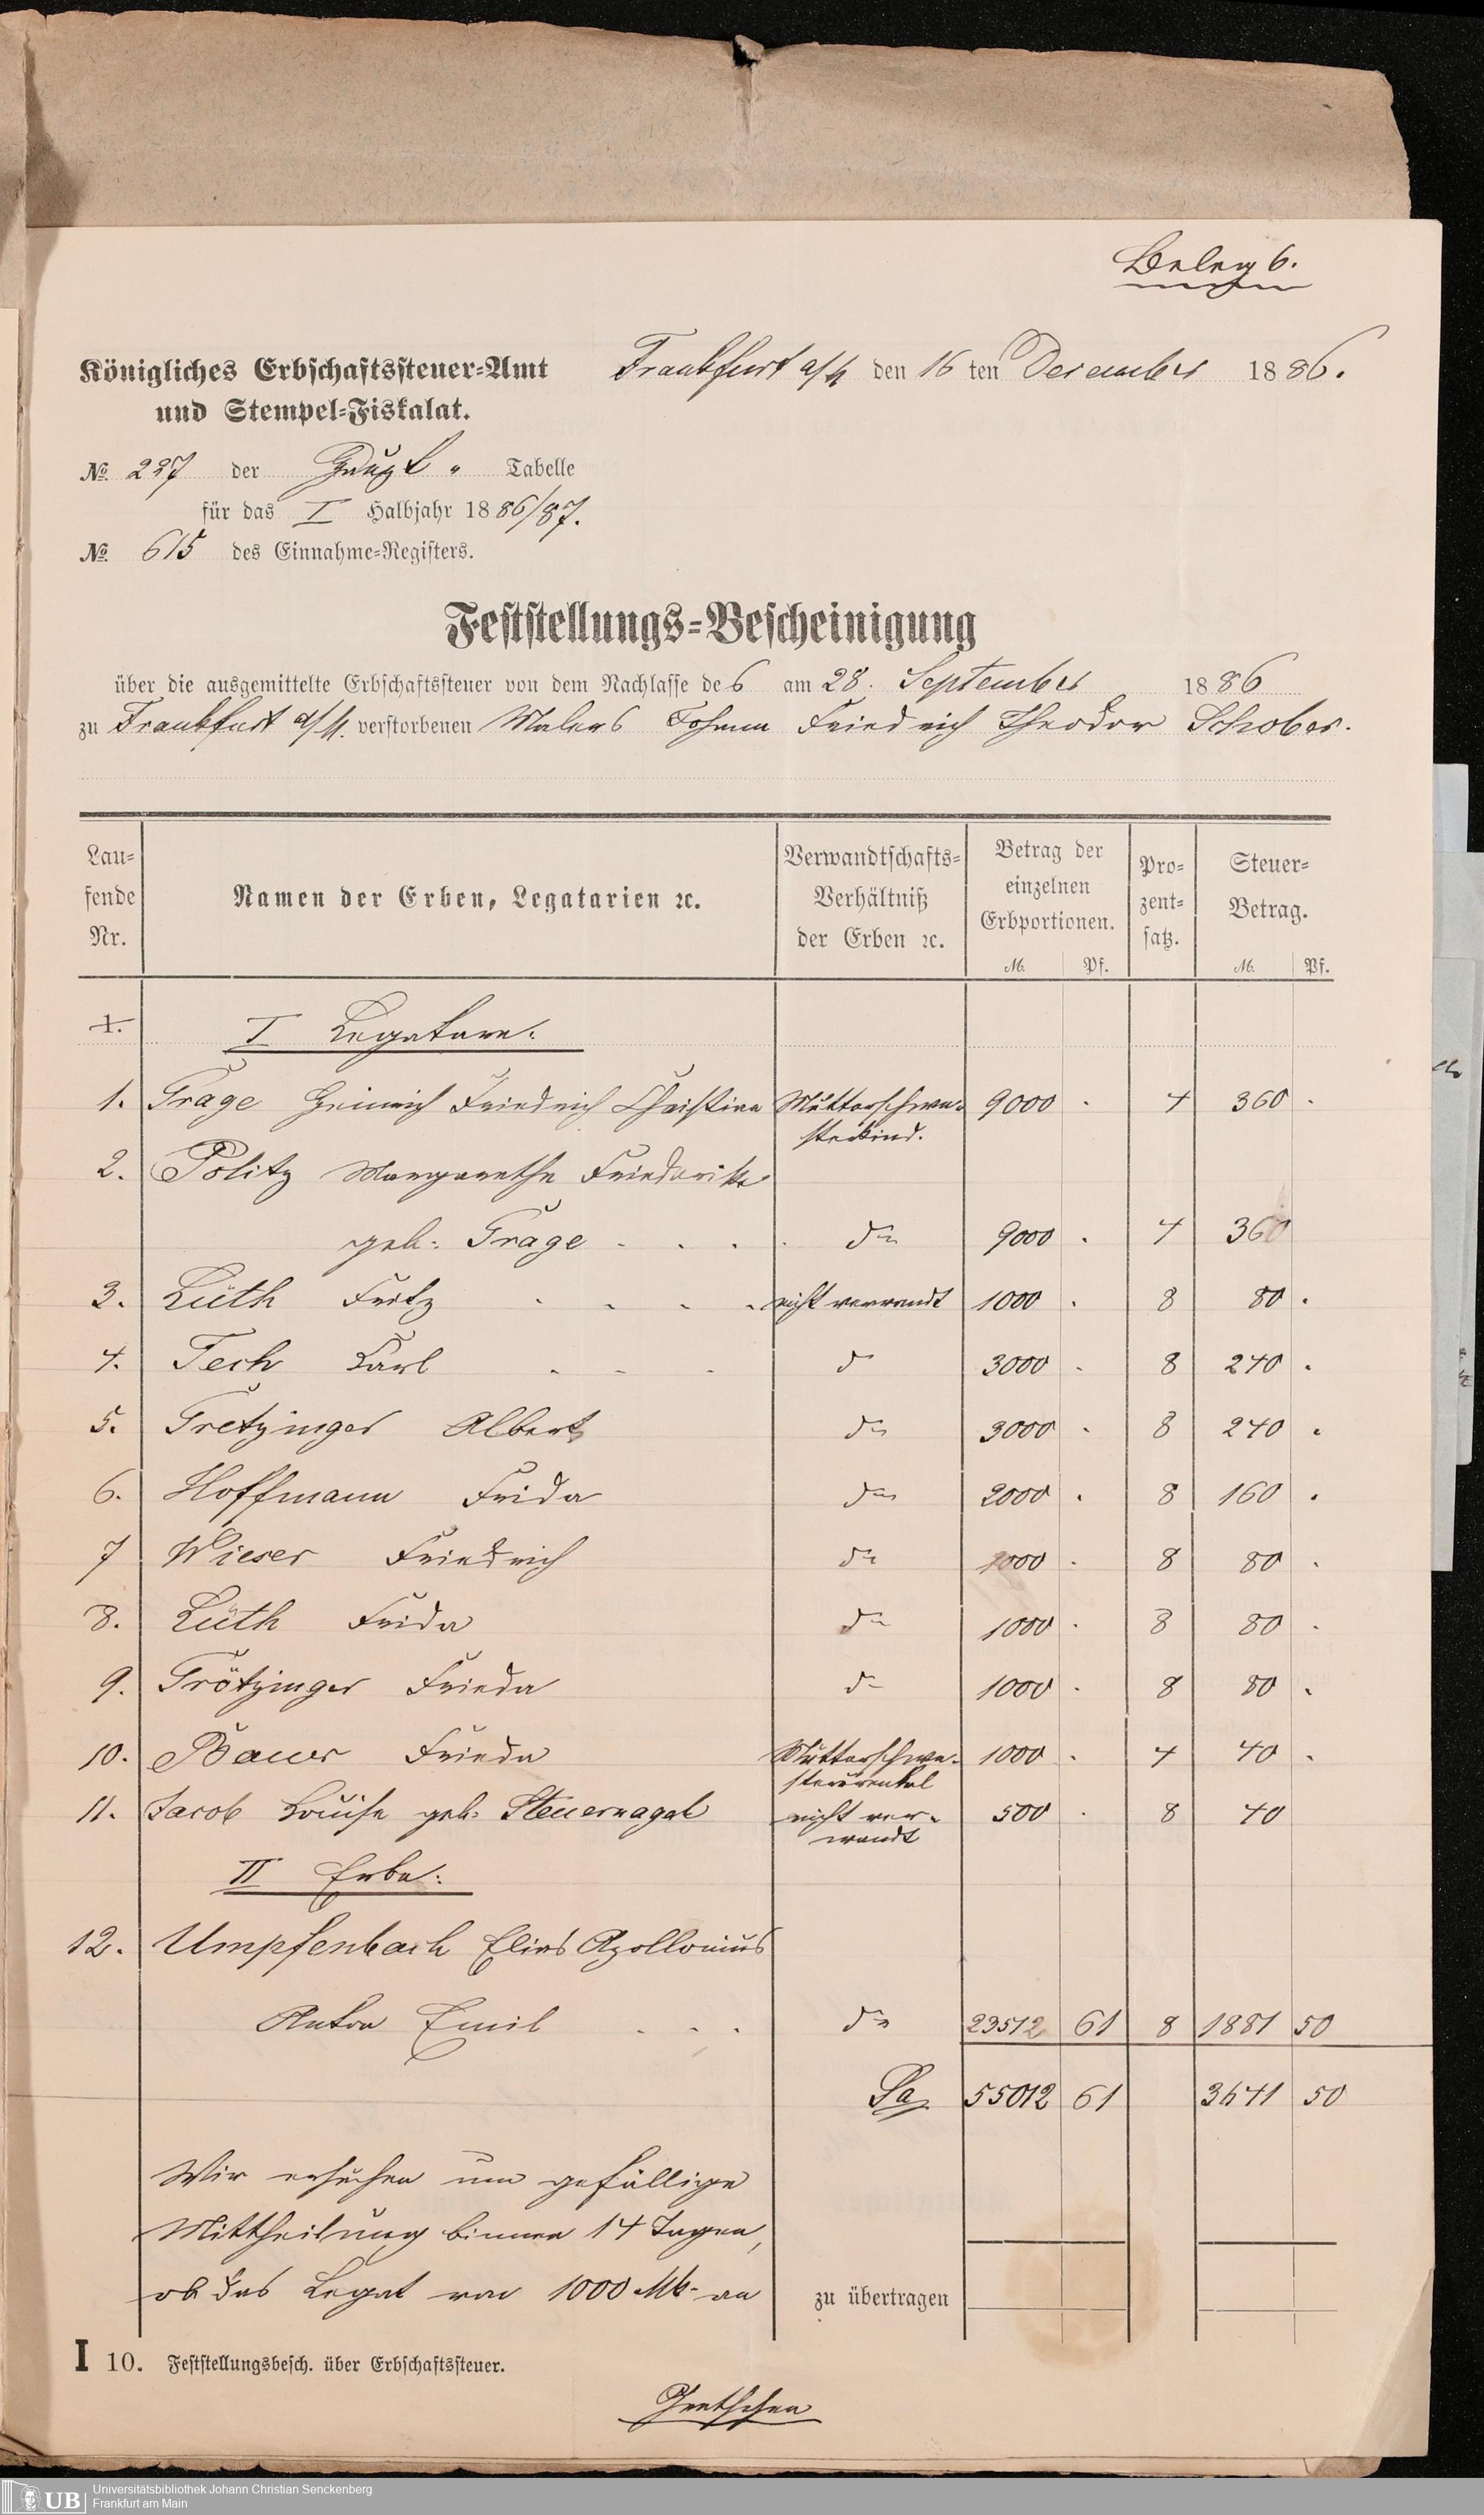 Beleg 6.
Königliches Erbschaftssteuer-Amt
und Stempel-Fiskalat.
Frankfurt a/M den 16 ten December 1886.
No. 227 der Haupt " Tabelle
für das I Halbjahr 1886/87.
No. 615 des Einnahme-Registers.
Feststellungs-Bescheinigung
über die ausgemittelte Erbschaftssteuer von dem Nachlasse des am 28. September 1886
zu Frankfurt a/M. verstorbenen Malers Johann Friedrich Theodor Schober.
Laufende Nr. Namen der Erben, Legatarien ꝛc. Verwandtschafts-Verhältniß der Erben ꝛc. Betrag der einzelnen Erbportionen. Prozentsatz. Steuer-Betrag.
M. Pf. M. Pf.
1. I Legatare:
1. Frage Heinrich Friedrich Christian Mutterschwesterkind. 9000 . 4 360 .
2. Politz Margarethe Friederike
geb: Frage . . . . do 9000 . 4 360
3. Lüth Fritz . . . . nicht verwandt 1000 . 8 80 .
4. Tech Karl . . . do 3000 . 8 240 .
5. Tretzinger Albert do 3000 . 8 240 .
6. Hoffmann Frida do 2000 . 8 160 .
7 Wieser Friedrich do 1000 . 8 80 .
8. Lüth Frida do 1000 . 8 80 .
9. Trötzinger Frieda do 1000 . 8 80 .
10. Bauer Frieda Mutterschwesterurenkel 1000 . 4 40 .
11. Jacob Louise geb: Steuernagel nicht verwandt 500 . 8 40
II Erbe:
12. Umpfenbach Elias Apollonius
Anton Emil . . . do 23512 61 8 1881 50
Sa 55012 61 3641 50
Wir ersuchen um gefällige
Mittheilung binnen 14 Tagen,
ob das Legat von 1000 Mk- an
zu übertragen
I 10. Feststellungsbesch. über Erbschaftssteuer.
UB Universitätsbibliothek Johann Christian Senckenberg
Frankfurt am Main